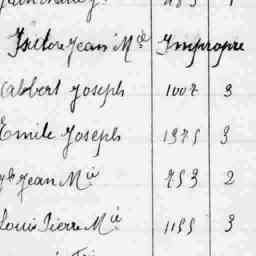 Isidore Jean Mie Impropre
Calbert Joseph 1007 3
Emile Joseph 1375 3
Jean Mie 753 2
Louis Pierre Mie 1155 3